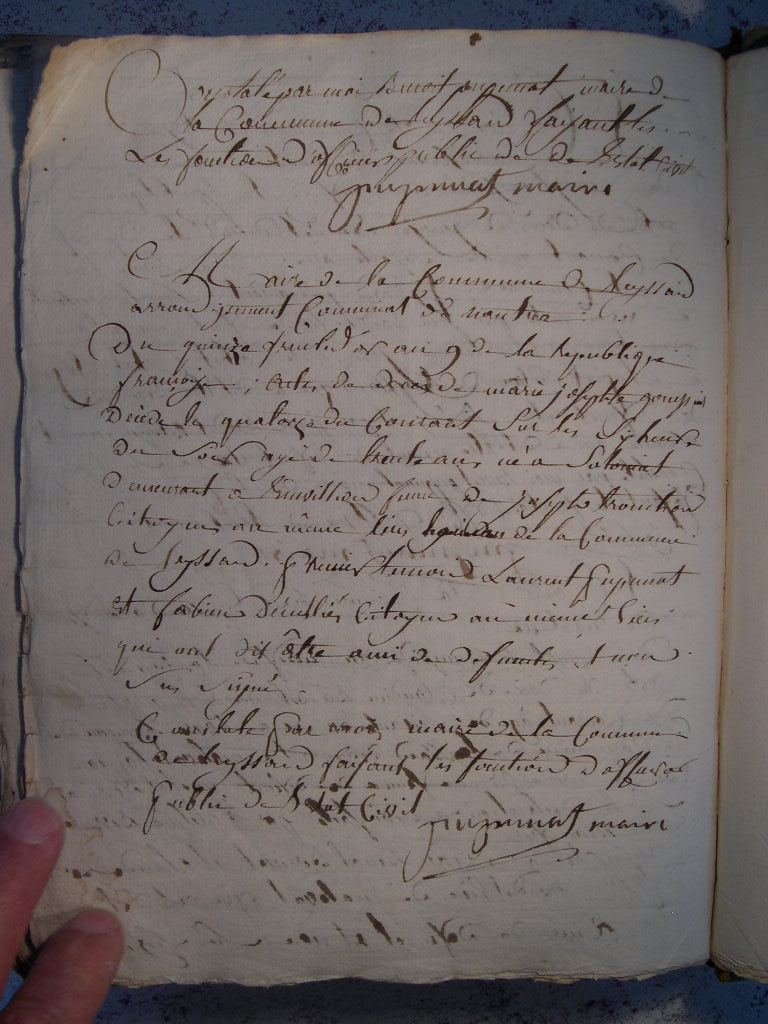 Constaté par moi Benoit pupunat maire de
la Commune de Leyssard faisant les
Les fonction D officiers public de de L Etat Civil
pupunat maire
Maire de la Commune de Leyssard
arrondissement Communal de nantua
Du quinze fructidor an 9 de la Republique
francoise ; acte de deces de marie josephte
Décédé le quatorze du Courant Sur les heures
du Soir agé de trente ans né a Solomiat
Demeurant a femme de joseph
Citoyen au même lieu de la Commune
de Leyssard . premier temoin Laurent pupunat
et fabien Citoyen au même Lieu
qui ont dit être ami de defuntes et non
Sus Signé
Constaté par moi maire de la Commune
de Leyssard faisant les fonction D officier
public de L etat Civil
pupunat maire